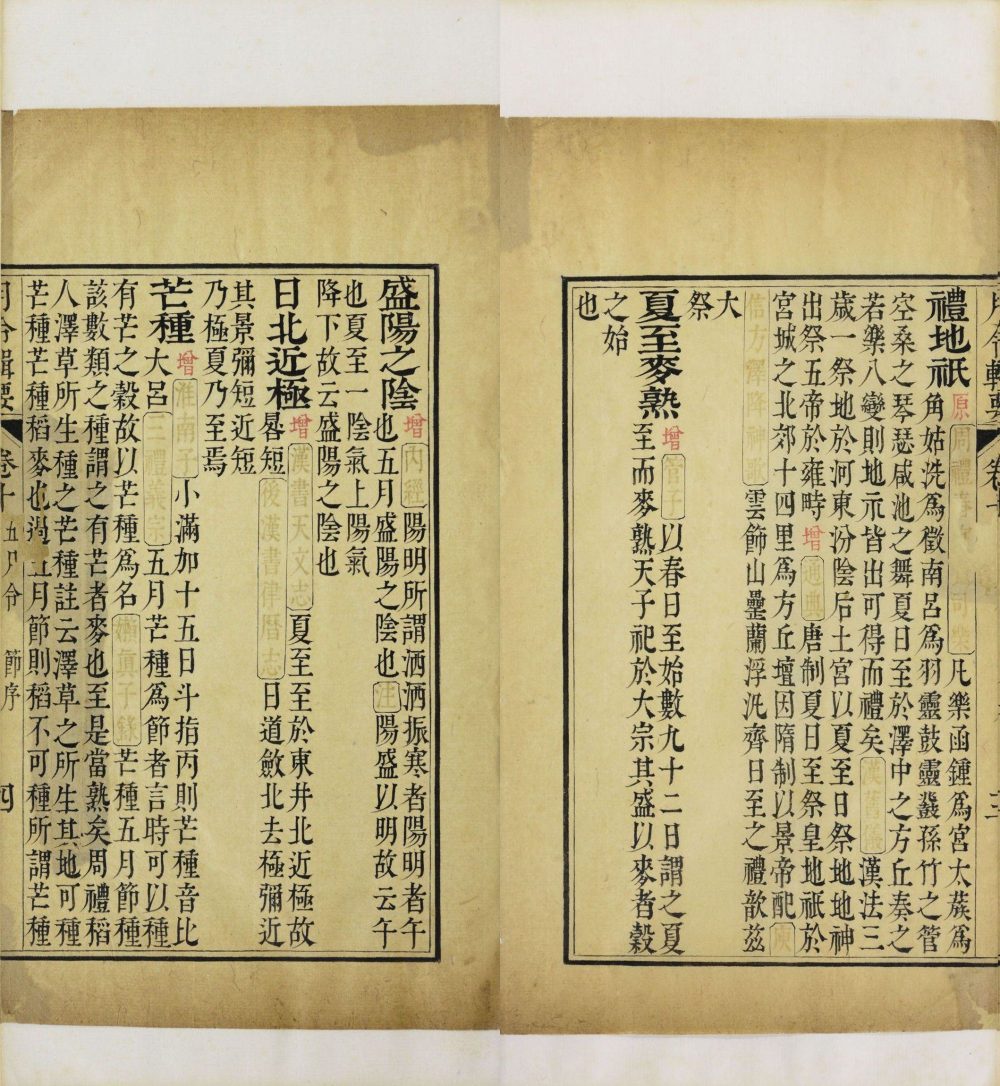 禮地祇
原周禮春官大司樂凡樂函鍾爲宮太蔟爲
角姑洗爲徵南呂爲羽靈鼓靈鼗孫竹之管
空桑之琴瑟咸池之舞夏日至於澤中之方丘奏之
若樂八變則地示皆出可得而禮矣漢舊儀漢法三
歲一祭地於河東汾陰后土宮以夏至日祭地地神
出祭五帝於雍畤增通典唐制夏日至祭皇地祇於
宮城之北郊十四里爲方丘壇因隋制以景帝配庾
信方澤降神歌雲飾山罍蘭浮汎齊日至之禮歆茲
大
祭
夏至麥熟
增管子以春日至始數九十二日謂之夏
至而麥熟天子祀於大宗其盛以麥者穀
之始
也
盛陽之陰
增內經陽明所謂洒洒振寒者陽明者午
也五月盛陽之陰也注陽盛以明故云午
也夏至一陰氣上陽氣
降下故云盛陽之陰也
日北近極
增漢書天文志夏至至於東井北近極故
晷短後漢書律曆志日道斂北去極彌近
其景彌短近短
乃極夏乃至焉
芒種
增淮南子小滿加十五日斗指丙則芒種音比
大呂三禮義宗五月芒種爲節者言時可以種
有芒之穀故以芒種爲名嬾真子錄芒種五月節種
該數類之種謂之有芒者麥也至是當熟矣周禮稻
人澤草所生種之芒種註云澤草之所生其地可種
芒種芒種稻麥也過五月節則稻不可種所謂芒種
月令輯要 卷十 五月令 節序 四